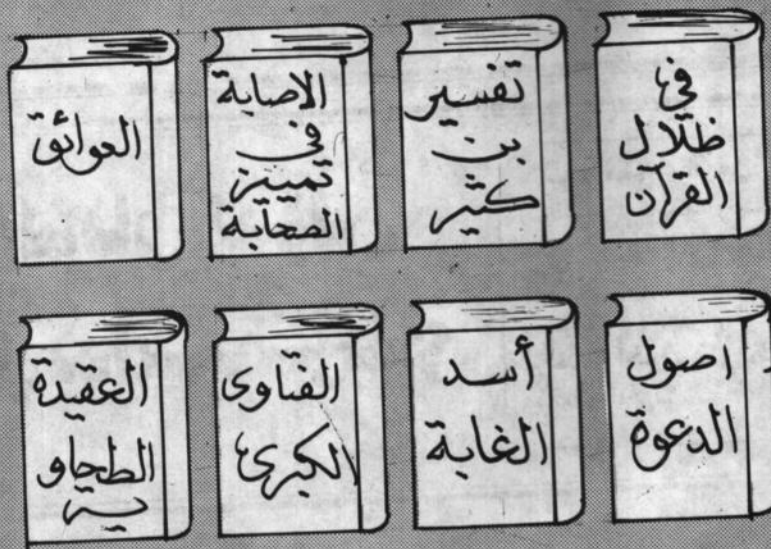 في
ظلال
القرآن
تفسير
بن
كثير
الاصابة
في
تمييز
الصحابة
العوائق
اصول
الدعوة
أسد
الغابة
الفتاوى
الكبرى
العقيدة
الطحاو
ية